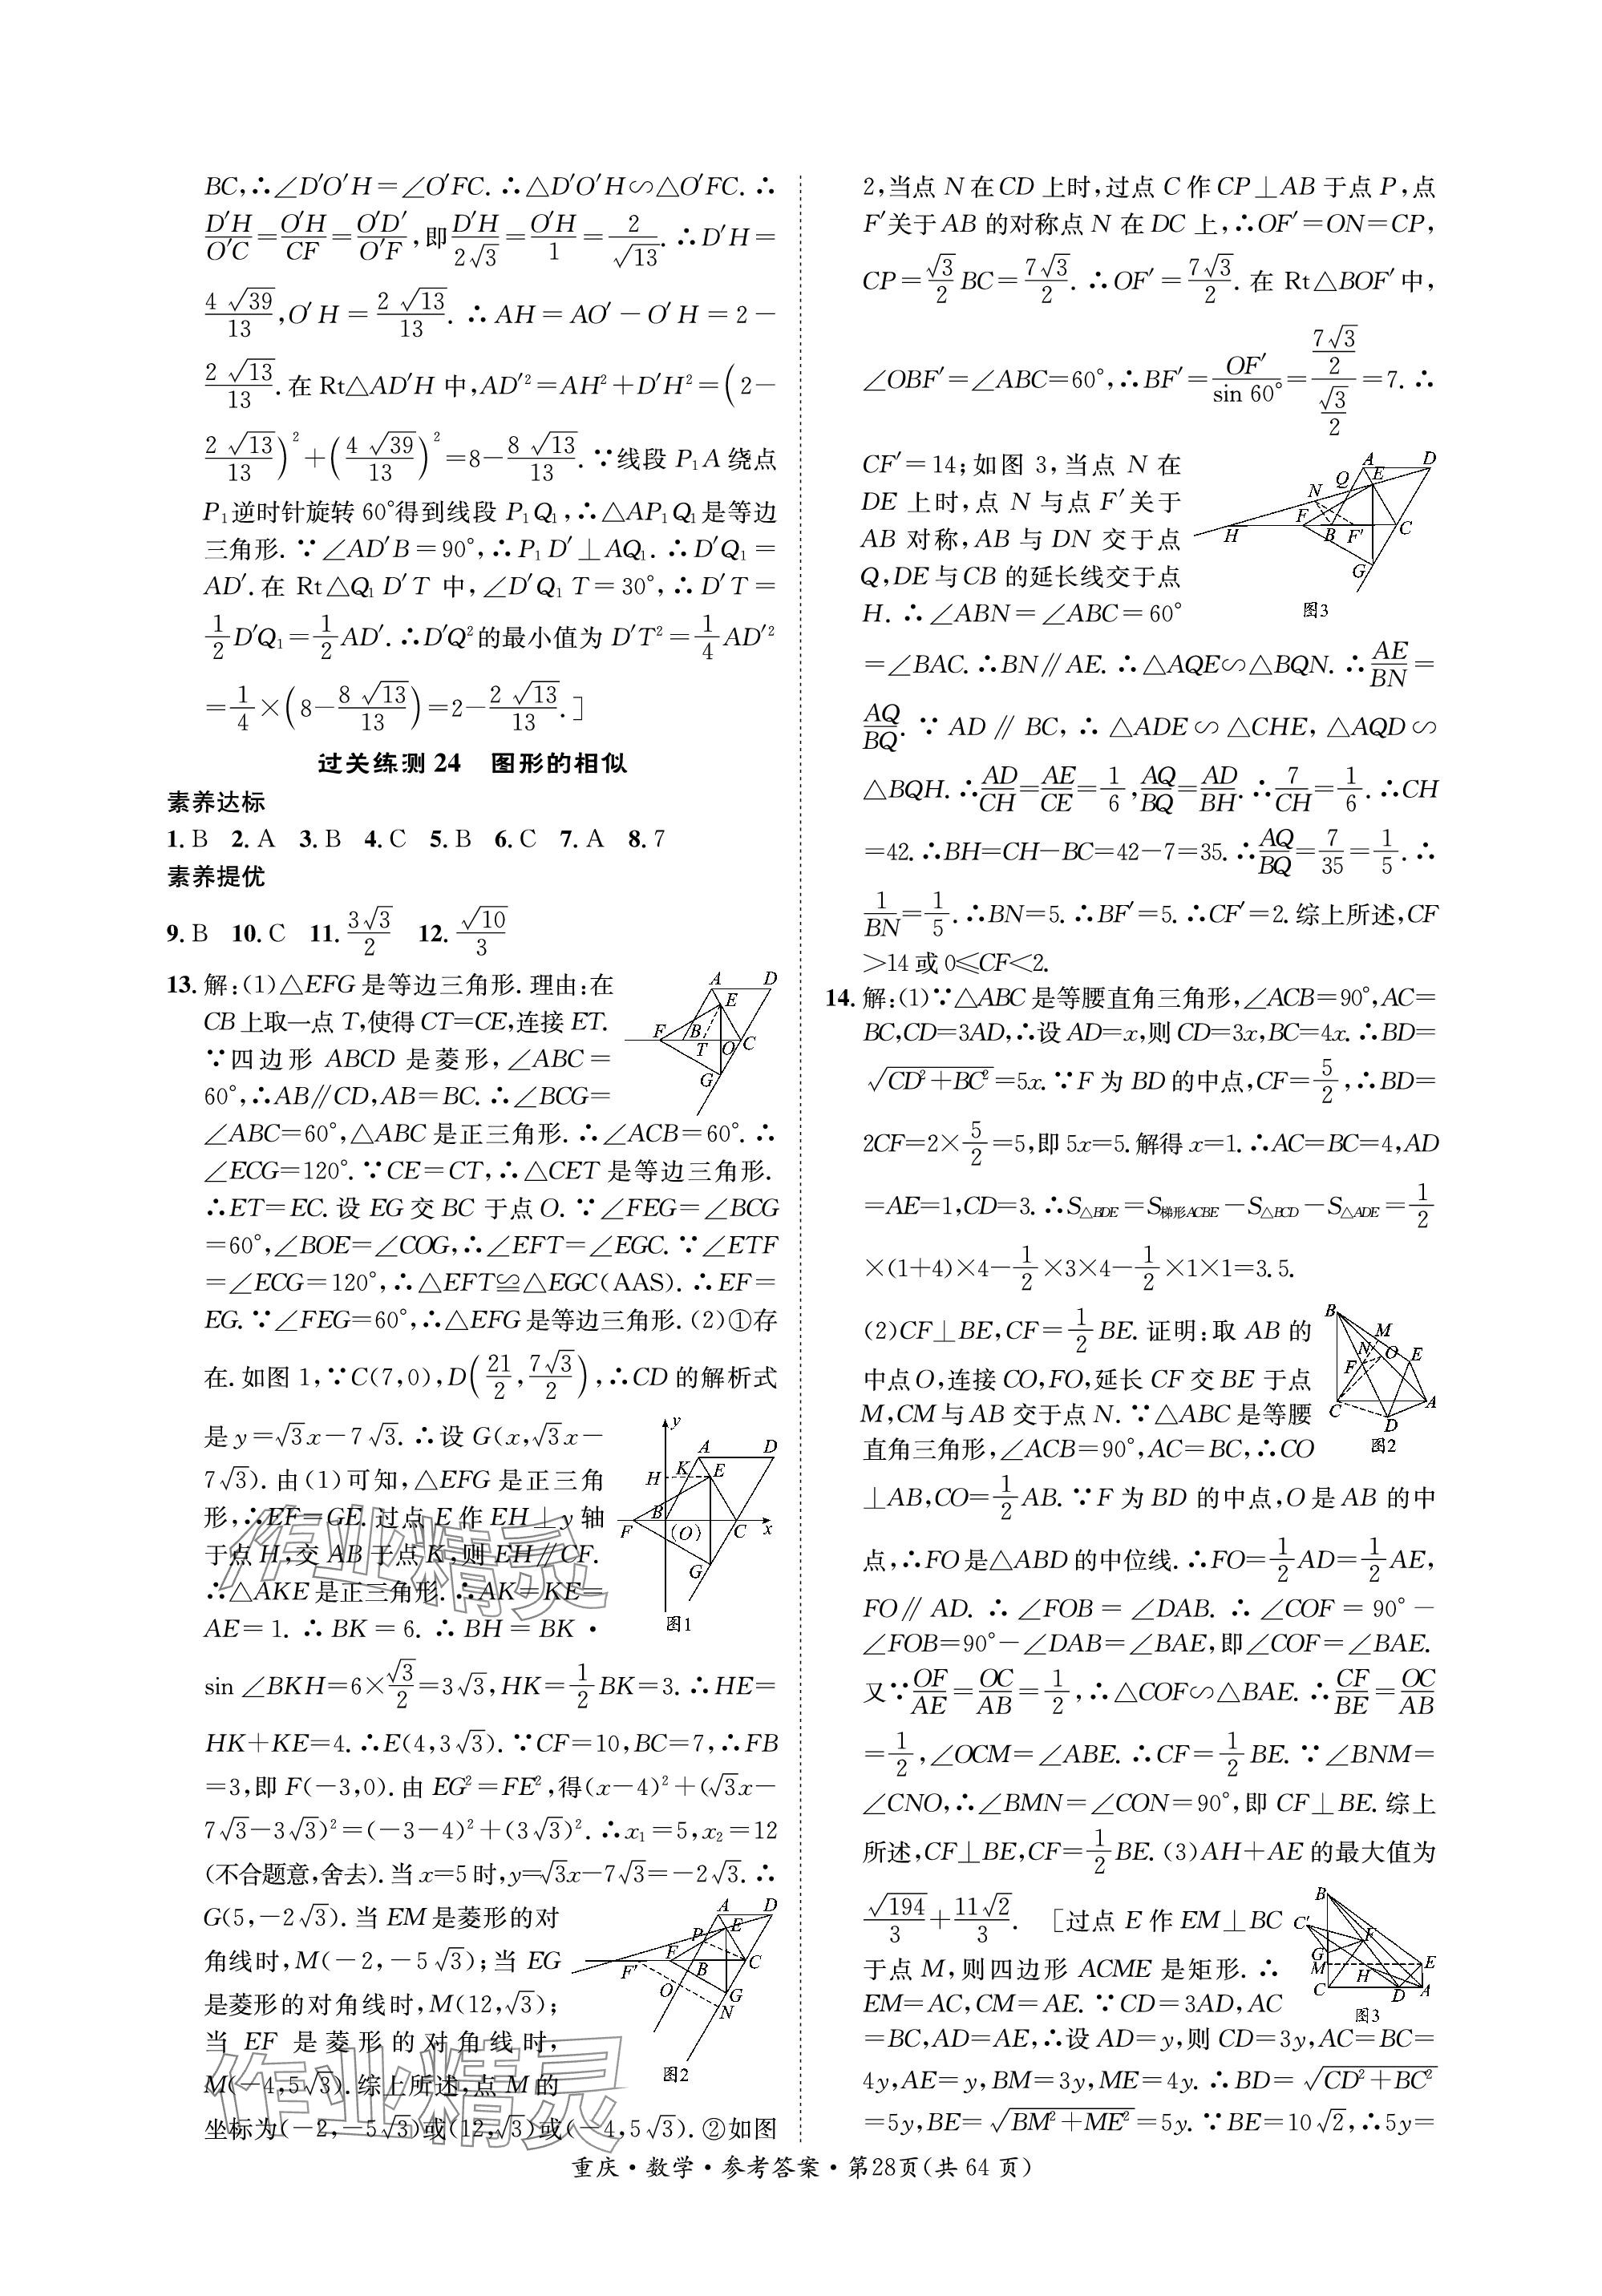 BC,∴∠D′O′H=∠O′FC.∴△D′O′H∽△O′FC.∴
D′H/O′C=O′H/CF=O′D′/O′F,即D′H/2√3=O′H/1=2/√13.∴D′H=
4√39/13,O′H=2√13/13.∴AH=AO′-O′H=2-
2√13/13.在Rt△AD′H中,AD′²=AH²+D′H²=(2-
2√13/13)²+(4√39/13)²=8-8√13/13.∵线段P₁A绕点
P₁逆时针旋转60°得到线段P₁Q₁,∴△AP₁Q₁是等边
三角形.∵∠AD′B=90°,∴P₁D′⊥AQ₁.∴D′Q₁=
AD′.在Rt△Q₁D′T中,∠D′Q₁T=30°,∴D′T=
1/2D′Q₁=1/2AD′.∴D′Q²的最小值为D′T²=1/4AD′²
=1/4×(8-8√13/13)=2-2√13/13.]
过关练测24 图形的相似
素养达标
1.B 2.A 3.B 4.C 5.B 6.C 7.A 8.7
素养提优
9.B 10.C 11.3√3/2 12.√10/3
13.解:(1)△EFG是等边三角形.理由:在
CB上取一点T,使得CT=CE,连接ET.
∵四边形ABCD是菱形,∠ABC=
60°,∴AB∥CD,AB=BC.∴∠BCG=
∠ABC=60°,△ABC是正三角形.∴∠ACB=60°.∴
∠ECG=120°.∵CE=CT,∴△CET是等边三角形.
∴ET=EC.设EG交BC于点O.∵∠FEG=∠BCG
=60°,∠BOE=∠COG,∴∠EFT=∠EGC.∵∠ETF
=∠ECG=120°,∴△EFT≌△EGC(AAS).∴EF=
EG.∵∠FEG=60°,∴△EFG是等边三角形.(2)①存
在.如图1,∵C(7,0),D(21/2,7√3/2),∴CD的解析式
是y=√3x-7√3.∴设G(x,√3x-
7√3).由(1)可知,△EFG是正三角
形,∴EF=GE.过点E作EH⊥y轴
于点H,交AB于点K,则EH∥CF.
∴△AKE是正三角形.∴AK=KE=
AE=1.∴BK=6.∴BH=BK·
图1
sin∠BKH=6×√3/2=3√3,HK=1/2BK=3.∴HE=
HK+KE=4.∴E(4,3√3).∵CF=10,BC=7,∴FB
=3,即F(-3,0).由EG²=FE²,得(x-4)²+(√3x-
7√3-3√3)²=(-3-4)²+(3√3)².∴x₁=5,x₂=12
(不合题意,舍去).当x=5时,y=√3x-7√3=-2√3.∴
G(5,-2√3).当EM是菱形的对
角线时,M(-2,-5√3);当EG
是菱形的对角线时,M(12,√3);
当EF是菱形的对角线时,
图2
M(-4,5√3).综上所述,点M的
坐标为(-2,-5√3)或(12,√3)或(-4,5√3).②如图
2,当点N在CD上时,过点C作CP⊥AB于点P,点
F′关于AB的对称点N在DC上,∴OF′=ON=CP,
CP=√3/2BC=7√3/2.∴OF′=7√3/2.在Rt△BOF′中,
∠OBF′=∠ABC=60°,∴BF′=OF′/sin 60°=(7√3/2)/(√3/2)=7.∴
CF′=14;如图3,当点N在
DE上时,点N与点F′关于
AB对称,AB与DN交于点
Q,DE与CB的延长线交于点
H.∴∠ABN=∠ABC=60°
图3
=∠BAC.∴BN∥AE.∴△AQE∽△BQN.∴AE/BN=
AQ/BQ.∵AD∥BC,∴△ADE∽△CHE,△AQD∽
△BQH.∴AD/CH=AE/CE=1/6,AQ/BQ=AD/BH.∴7/CH=1/6.∴CH
=42.∴BH=CH-BC=42-7=35.∴AQ/BQ=7/35=1/5.∴
1/BN=1/5.∴BN=5.∴BF′=5.∴CF′=2.综上所述,CF
>14或0≤CF<2.
14.解:(1)∵△ABC是等腰直角三角形,∠ACB=90°,AC=
BC,CD=3AD,∴设AD=x,则CD=3x,BC=4x.∴BD=
√(CD²+BC²)=5x.∵F为BD的中点,CF=5/2,∴BD=
2CF=2×5/2=5,即5x=5.解得x=1.∴AC=BC=4,AD
=AE=1,CD=3.∴S△BDE=S梯形ACBE-S△BCD-S△ADE=1/2
×(1+4)×4-1/2×3×4-1/2×1×1=3.5.
(2)CF⊥BE,CF=1/2BE.证明:取AB的
中点O,连接CO,FO,延长CF交BE于点
M,CM与AB交于点N.∵△ABC是等腰
直角三角形,∠ACB=90°,AC=BC,∴CO
图2
⊥AB,CO=1/2AB.∵F为BD的中点,O是AB的中
点,∴FO是△ABD的中位线.∴FO=1/2AD=1/2AE,
FO∥AD.∴∠FOB=∠DAB.∴∠COF=90°-
∠FOB=90°-∠DAB=∠BAE,即∠COF=∠BAE.
又∵OF/AE=OC/AB=1/2,∴△COF∽△BAE.∴CF/BE=OC/AB
=1/2,∠OCM=∠ABE.∴CF=1/2BE.∵∠BNM=
∠CNO,∴∠BMN=∠CON=90°,即CF⊥BE.综上
所述,CF⊥BE,CF=1/2BE.(3)AH+AE的最大值为
√194/3+11√2/3. [过点E作EM⊥BC
于点M,则四边形ACME是矩形.∴
EM=AC,CM=AE.∵CD=3AD,AC
图3
=BC,AD=AE,∴设AD=y,则CD=3y,AC=BC=
4y,AE=y,BM=3y,ME=4y.∴BD=√(CD²+BC²)
=5y,BE=√(BM²+ME²)=5y.∵BE=10√2,∴5y=
重庆·数学·参考答案·第28页(共64页)
作业精灵
作业精灵